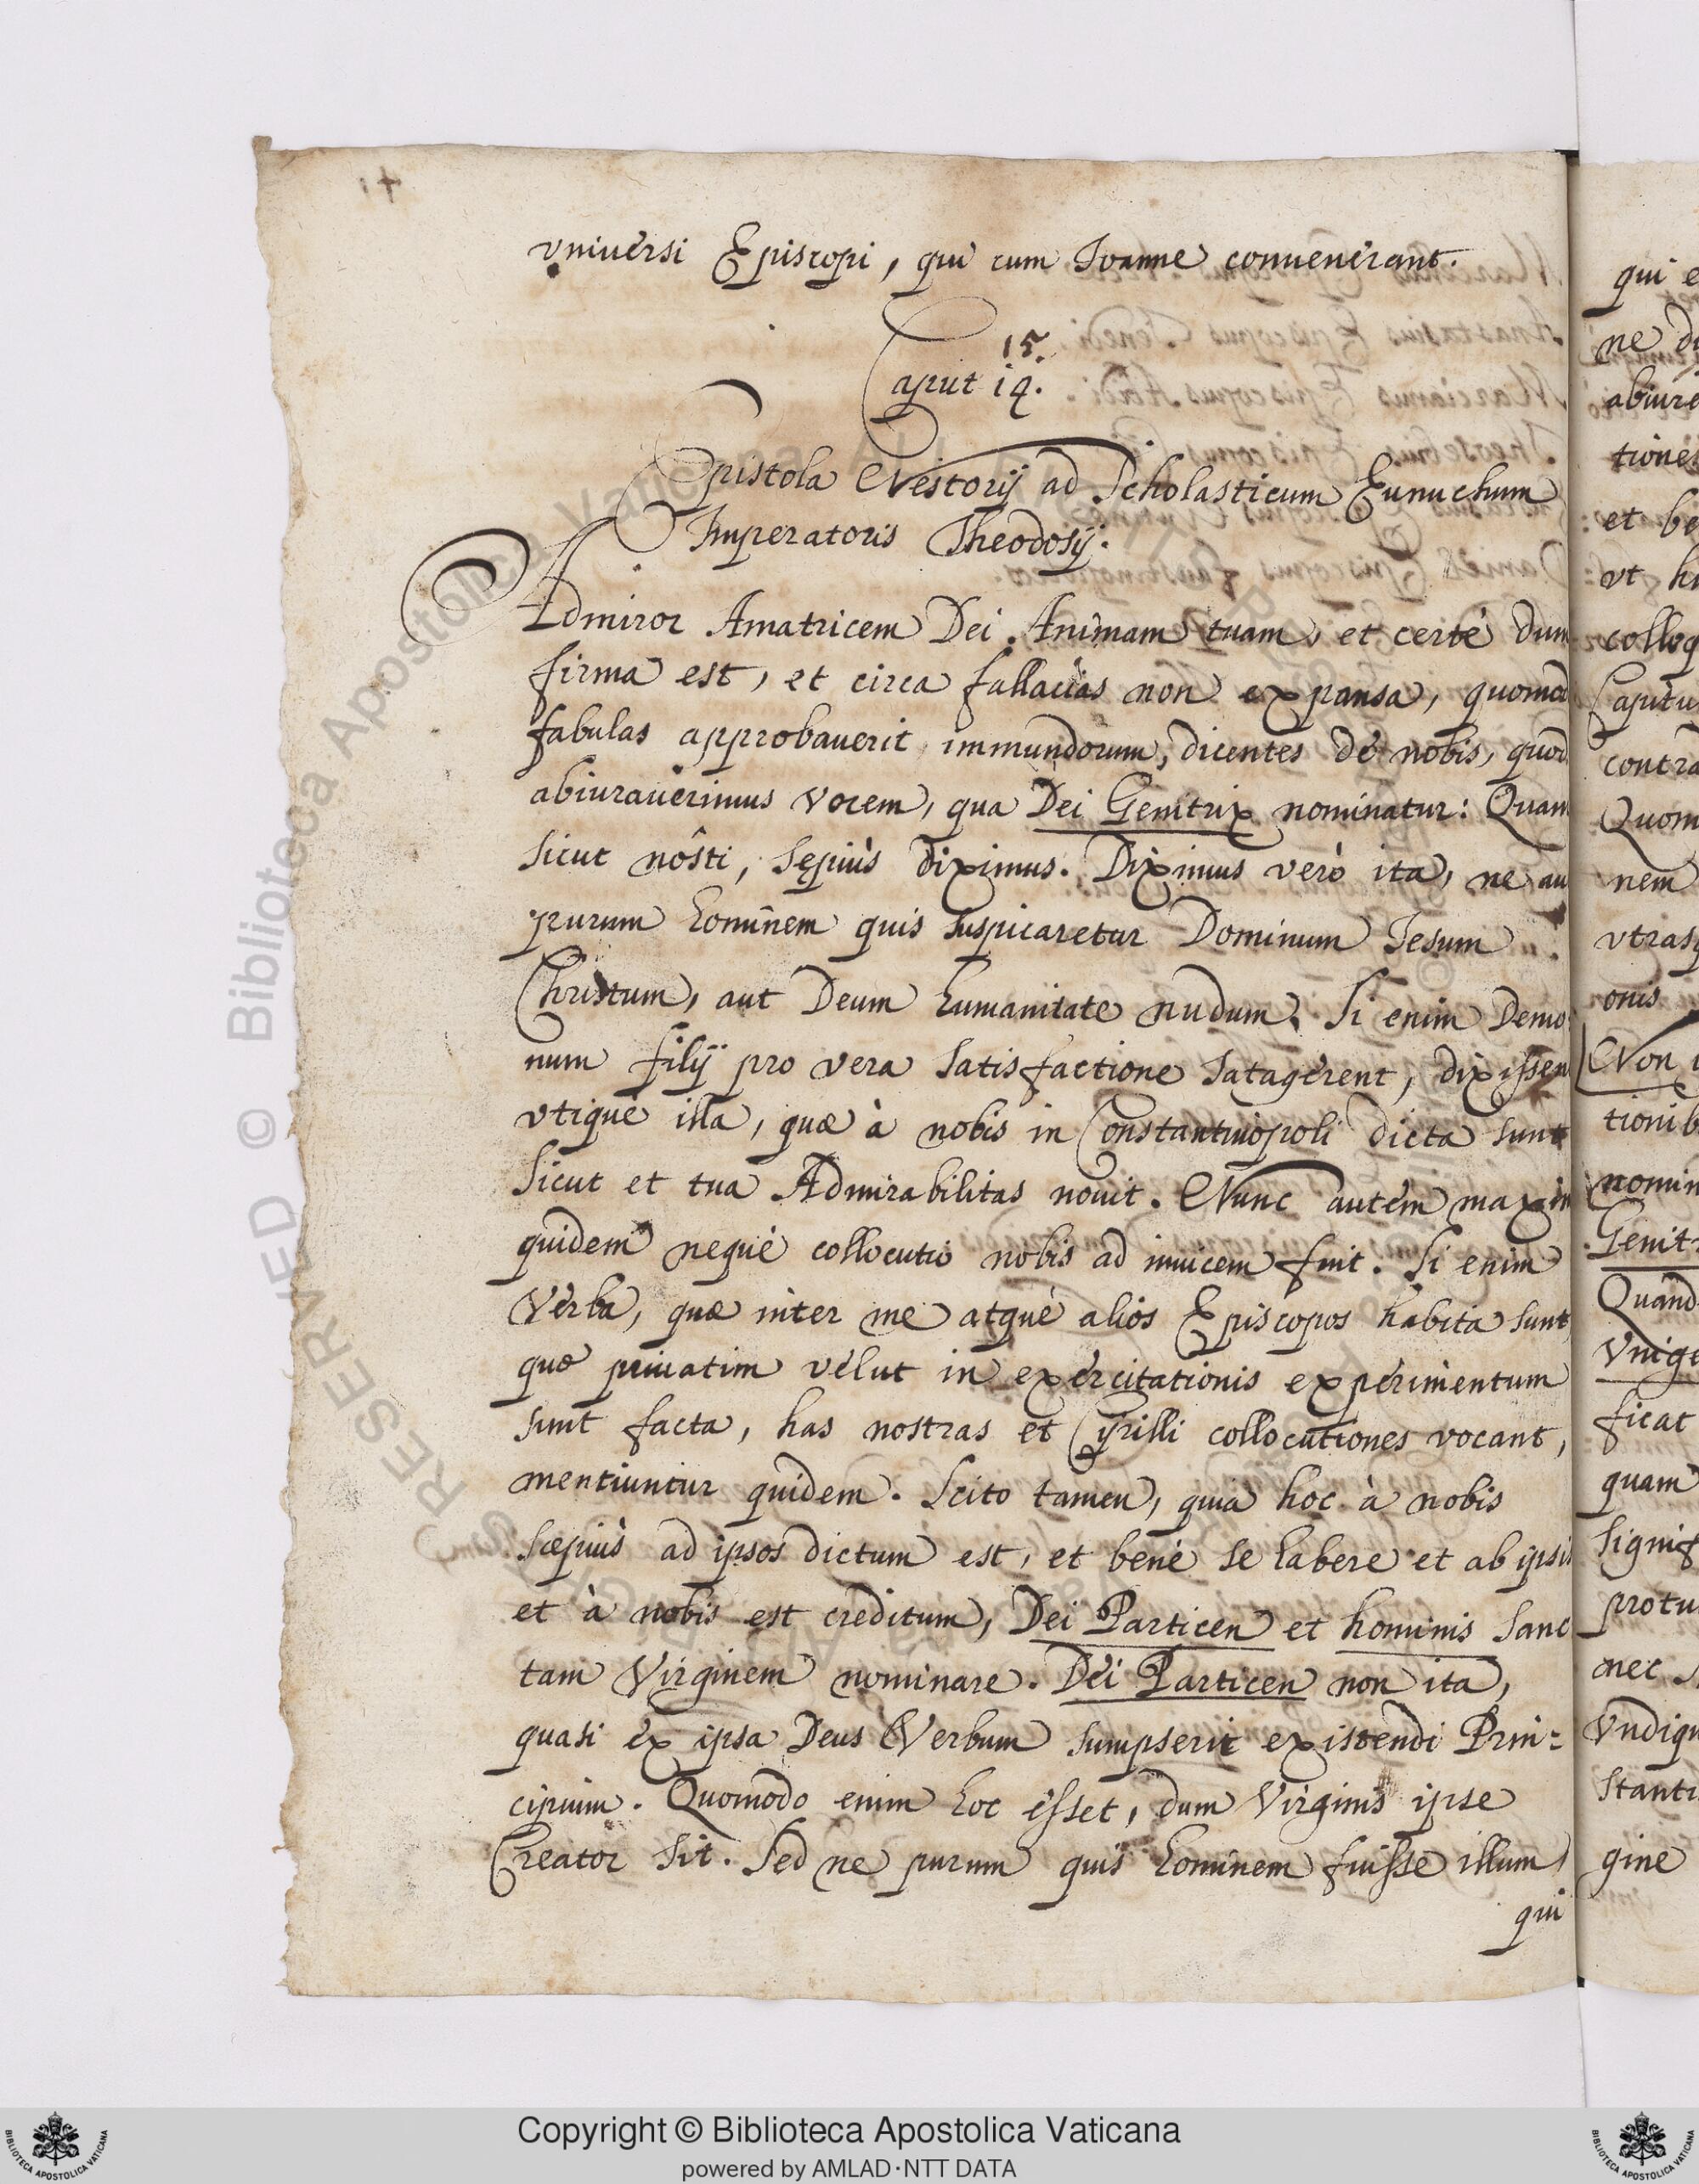 vniuersi Episcopi, qui cum Ioanne conuenerant.
15.
Caput 14.
Epistola Nestorij ad Scholasticum Eunuchum
Imperatoris Theodosij.
Admiror Amatricem Dei Animam tuam, et certè dum
firma est, et circa fallacias non expansa, quomod
fabulas approbauerit immundorum, dicentes de nobis, quod
abiurauerimus vocem, qua Dei Genitrix nominatur: Quam
sicut nôsti, sępiùs diximus. Diximus verò ita, ne au
purum hominem quis suspicaretur Dominum Iesum
Christum, aut Deum humanitate nudum. Si enim Demo
num filij pro vera satisfactione satagerent, dixissen
vtique illa, quæ à nobis in Constantinopoli dicta sunt
sicut et tua Admirabilitas nouit. Nunc autem maxim
quidem neque collocutio nobis ad inuicem fuit. Si enim
Verba, quæ inter me atque alios Episcopos habita sunt
quæ priuatim velut in exercitationis experimentum
sunt facta, has nostras et Cyrilli collocutiones vocant,
mentiuntur quidem. Scito tamen, quia hoc à nobis
sæpiùs ad ipsos dictum est, et bene se habere et ab ipsis
et à nobis est creditum, Dei Particen et hominis Sanc
tam Virginem nominare. Dei Particen non ita,
quasi ex ipsa Deus Verbum sumpserit existendi Prin=
cipium. Quomodo enim hoc esset, dum Virginis ipse
Creator sit. Sed ne purum quis hominem fuisse illum
qui
qui e
ne di
abiure
tiones
et be
vt hu
colloq
Capitu
contra
Quom
nem
vtrasq
onis
Non i
tionib
nomin
Genit
Quand
Vnige
ficat
quam
signif
protu
nec
Vndiqu
stanti
gine
© Biblioteca Apostolica Vaticana
RESERVED
Copyright © Biblioteca Apostolica Vaticana
powered by AMLAD·NTT DATA
BIBLIOTECA APOSTOLICA VATICANA
BIBLIOTECA APOSTOLICA VATICANA